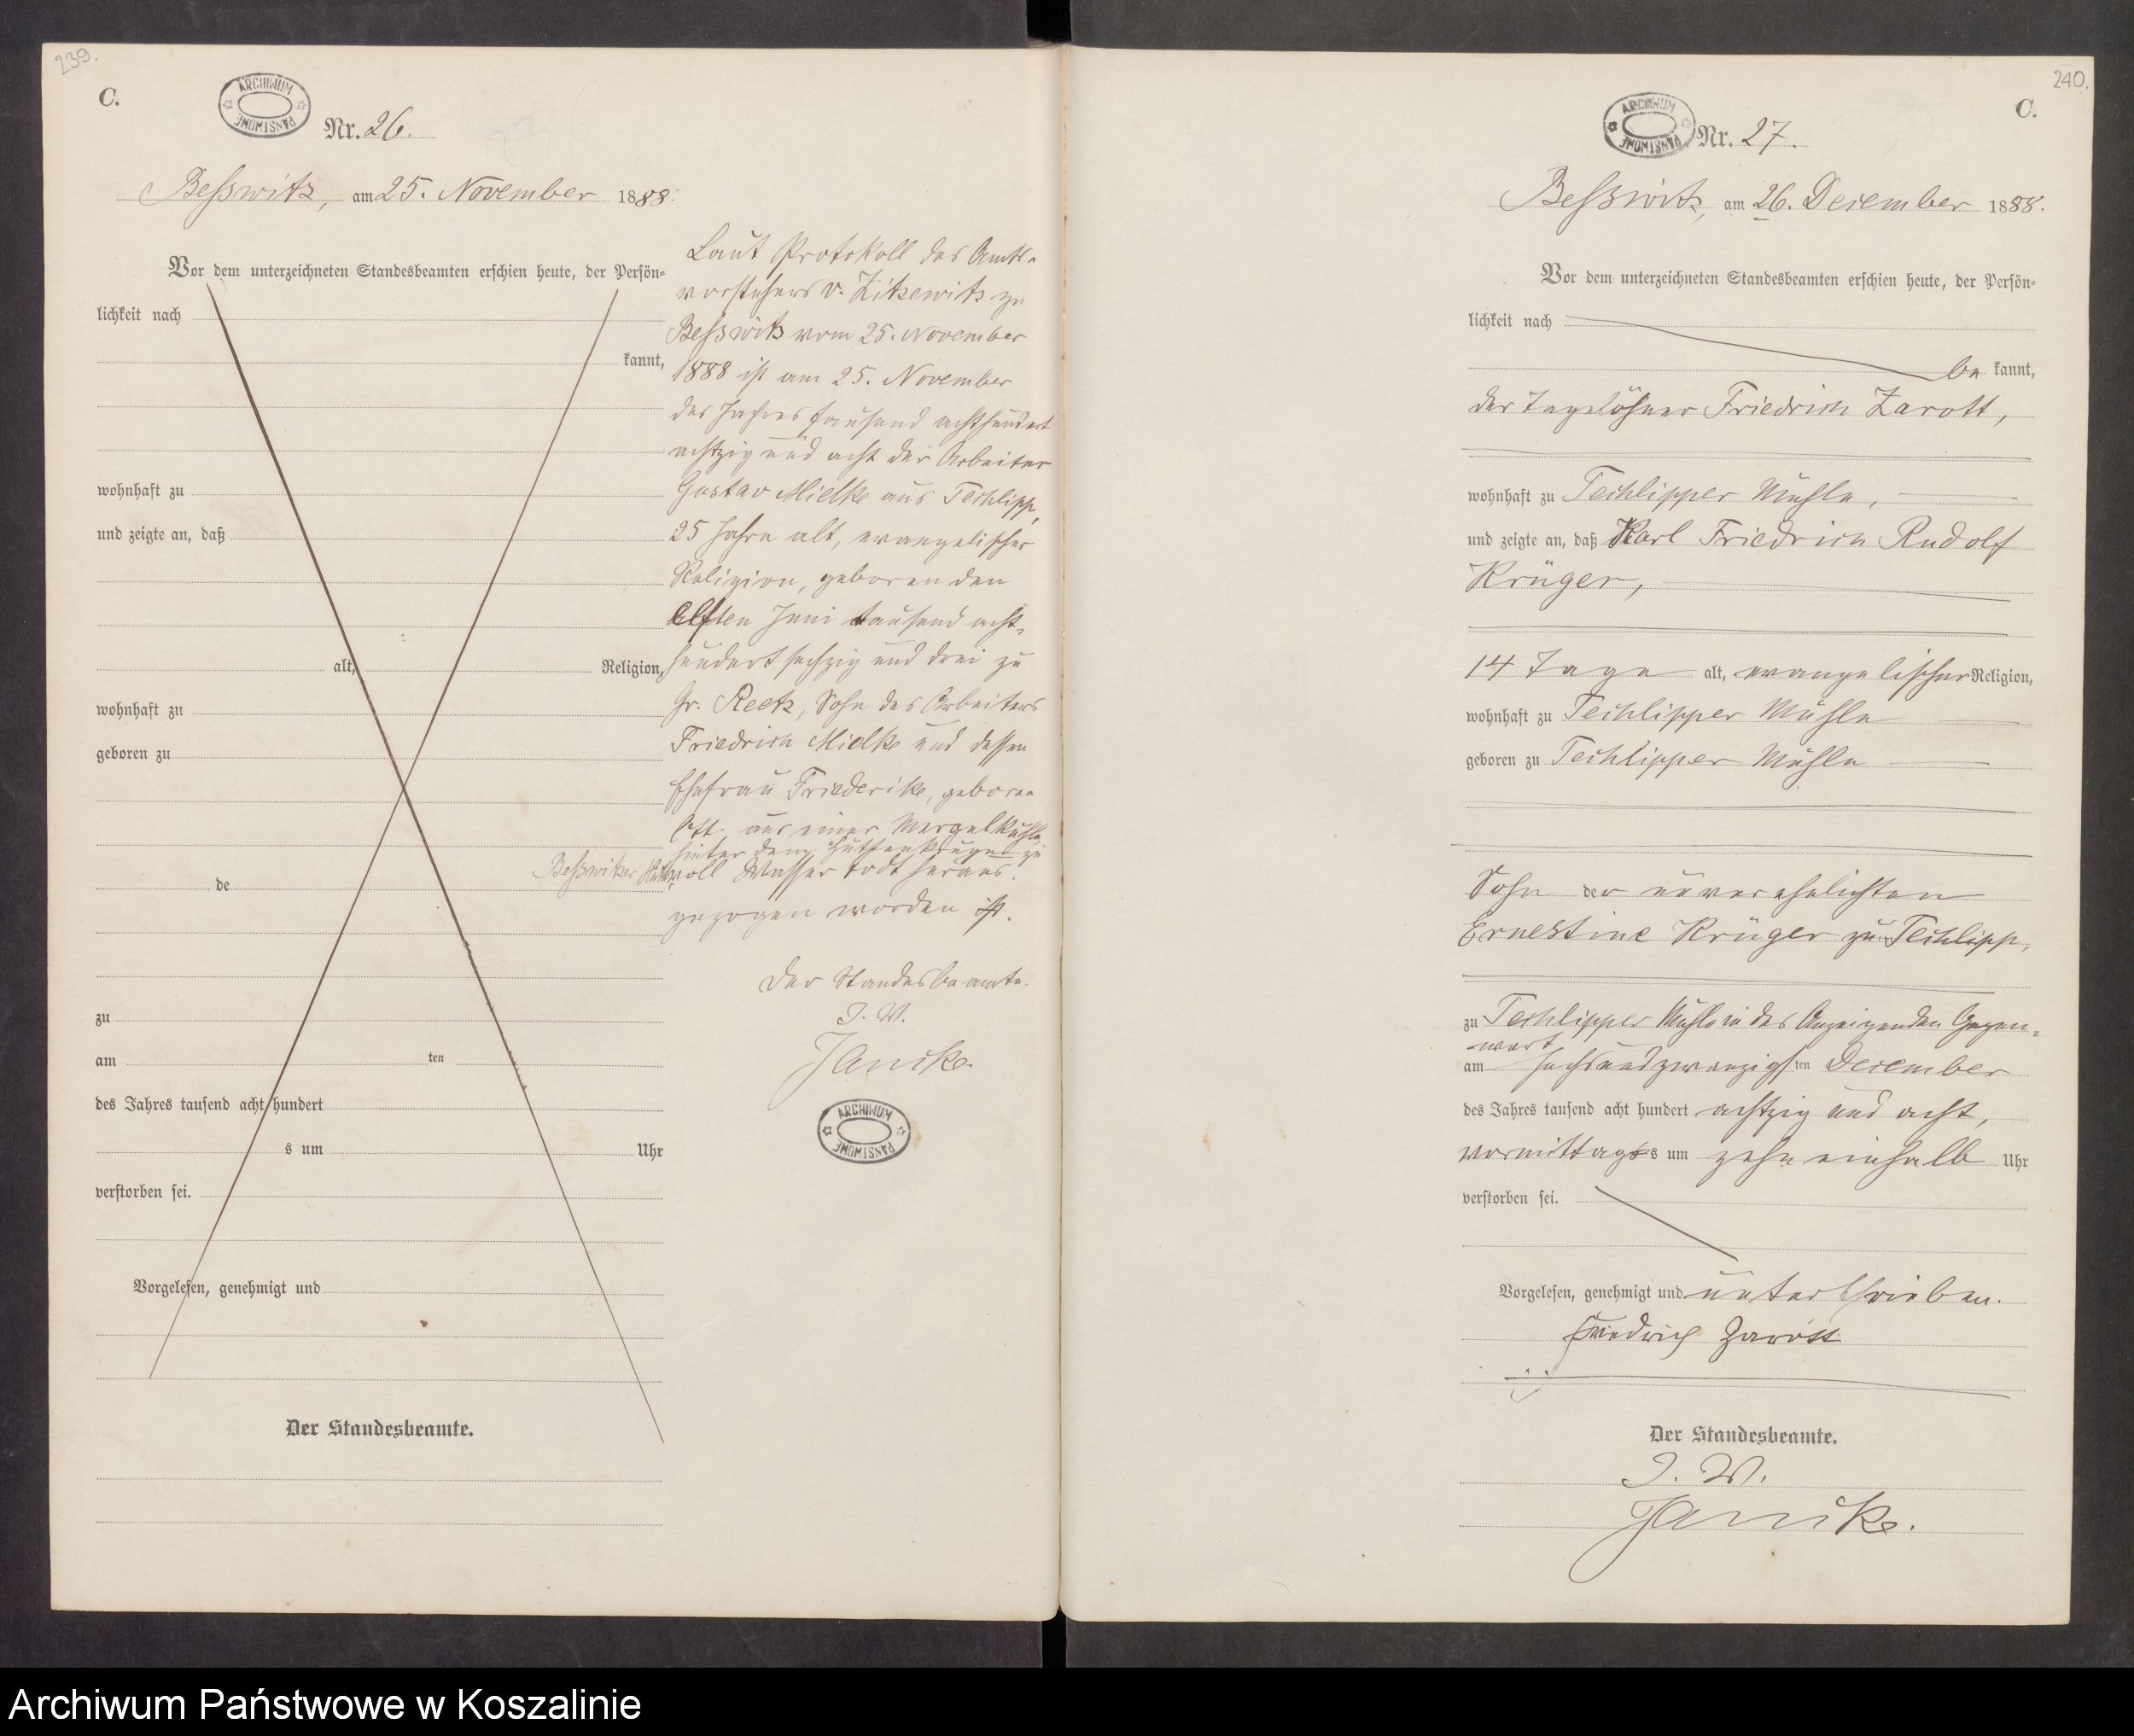 239.
C.
ARCHIWUM PAŃSTWOWE
Nr. 26.
Beßwitz, am 25. November 1888.
Vor dem unterzeichneten Standesbeamten erschien heute, der Persön-
lichkeit nach
kannt,
wohnhaft zu
und zeigte an, daß
alt, Religion,
wohnhaft zu
geboren zu
de
zu
am ten
des Jahres tausend acht hundert
s um Uhr
verstorben sei.
Vorgelesen, genehmigt und
Der Standesbeamte.
Laut Protokoll des Amts-
vorstehers v. Zitzewitz zu
Beßwitz vom 25. November
1888 ist am 25. November
des Jahres tausend achthundert
achtzig und acht der Arbeiter
Gustav Mielke aus Techlipp,
25 Jahre alt, evangelischer
Religion, geboren den
elften Juni tausend acht-
hundert sechzig und drei zu
Gr. Reetz, Sohn des Arbeiters
Friedrich Mielke und dessen
Ehefrau Friederike, geborene
aus einer Mergelkuhle
hinter dem zu
Beßwitzer voll Wasser todt heraus-
gezogen worden ist.
Der Standesbeamte.
I. V.
Janike.
ARCHIWUM PAŃSTWOWE
240.
C.
ARCHIWUM PAŃSTWOWE
Nr. 27.
Beßwitz, am 26. December 1888.
Vor dem unterzeichneten Standesbeamten erschien heute, der Persön-
lichkeit nach
be kannt,
der Tagelöhner Friedrich Zarott,
wohnhaft zu Techlipper Mühle,
und zeigte an, daß Karl Friedrich Rudolf
Krüger,
14 Tage alt, evangelischer Religion,
wohnhaft zu Techlipper Mühle
geboren zu Techlipper Mühle
Sohn der unverehelichten
Ernestine Krüger zu Techlipp,
zu Techlipper Mühle in des Anzeigenden Gegen-
wart
am sechsundzwanzigsten December
des Jahres tausend acht hundert achtzig und acht,
vormittags um zehn einhalb Uhr
verstorben sei.
Vorgelesen, genehmigt und unterschrieben.
Friedrich Zarott
Der Standesbeamte.
I. V.
Janike.
Archiwum Państwowe w Koszalinie